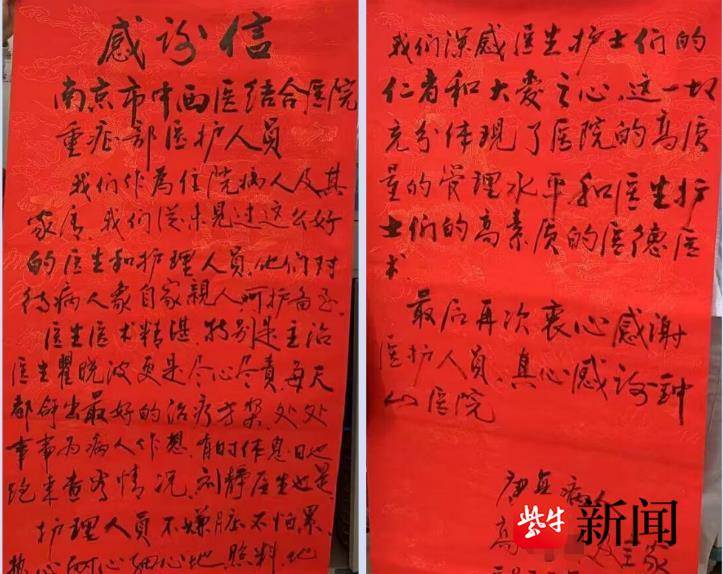 感谢信
南京市中西医结合医院
重症部医护人员
我们作为住院病人及其
家属,我们从未见过这么好
的医生和护理人员,他们对
待病人象自家親人,呵护备至.
医生医术精湛,特别是主治
医生瞿晓波更是尽心尽责,每天
都拿出最好的治疗方案,处处
事事为病人作想,有时休息日也
跑来查岗情况,刘静医生也是
护理人员不嫌脏不怕累,
热心耐心细心地照料,他
我们深感医生护士们的
仁者和大爱之心,这一切
充分体现了医院的高质
量的管理水平和医生护
士们的高素质的医德医
术.
最后再次衷心感谢
医护人员,真心感谢钟
山医院
病人
高
家
紫牛新闻